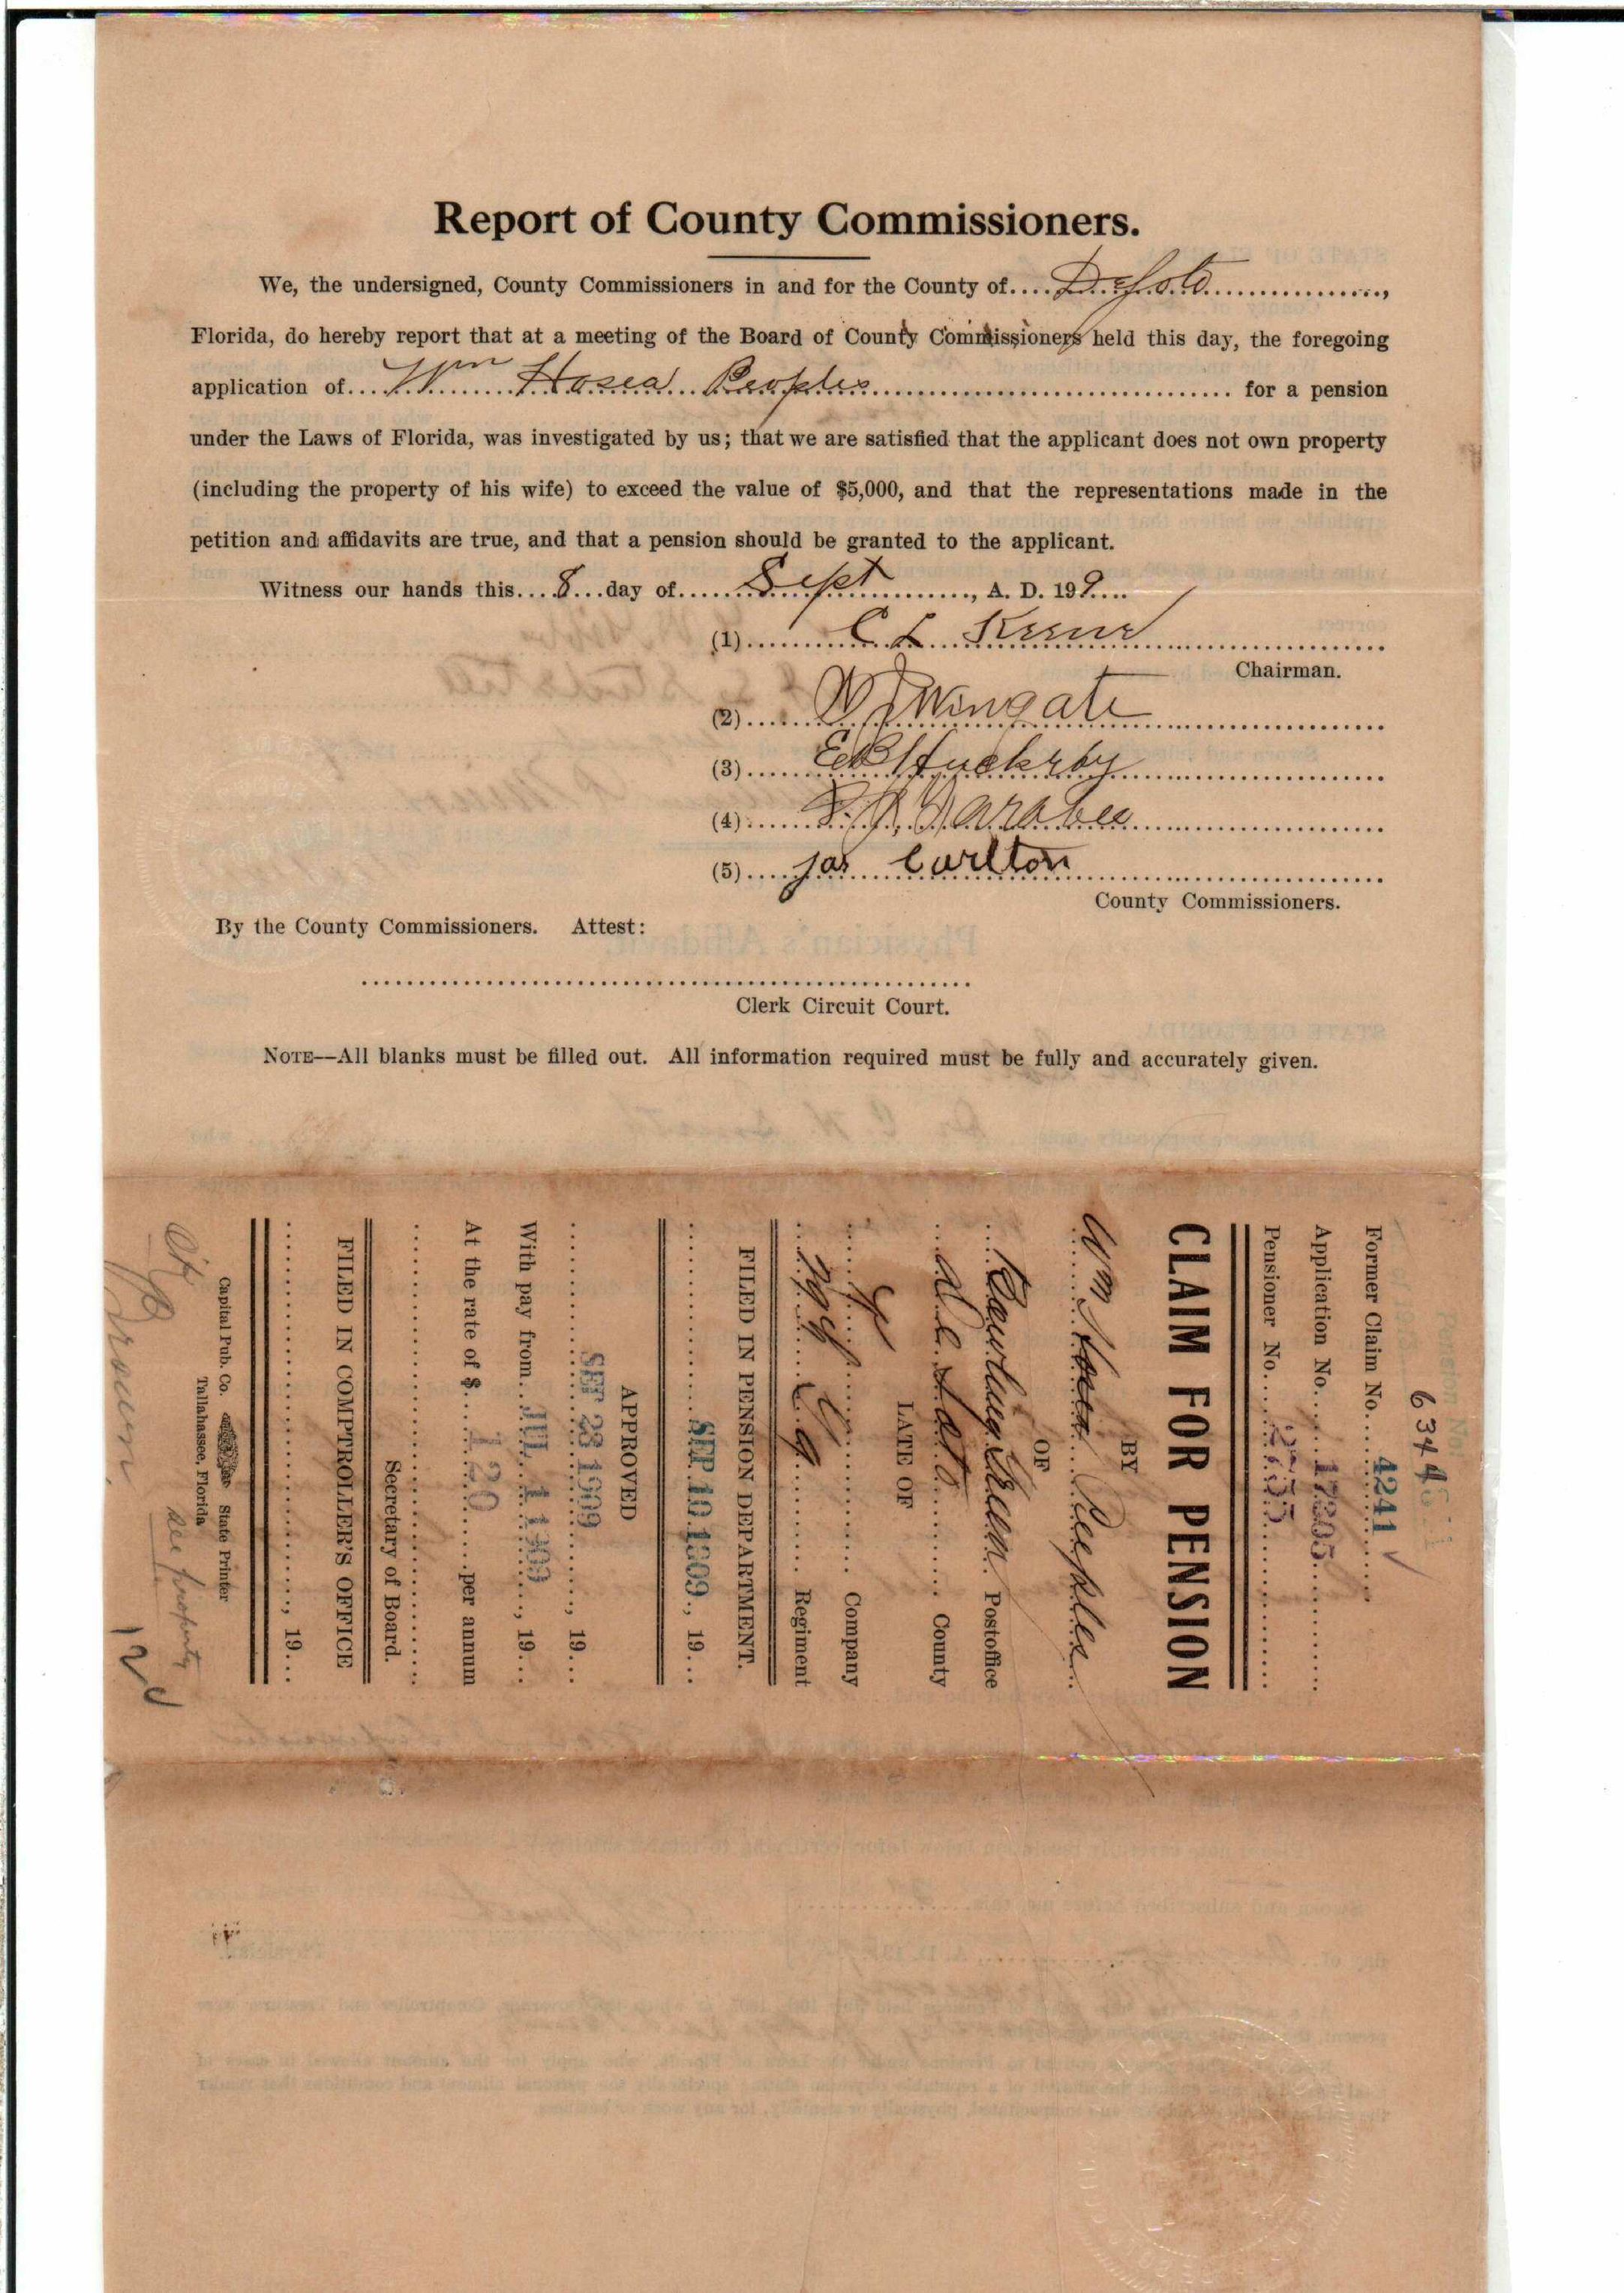 Report of County Commissioners.
We, the undersigned, County Commissioners in and for the County of....DeSoto................,
Florida, do hereby report that at a meeting of the Board of County Commissioners held this day, the foregoing
application of....Wm Hosea Peoples.................... for a pension
under the Laws of Florida, was investigated by us; that we are satisfied that the applicant does not own property
(including the property of his wife) to exceed the value of $5,000, and that the representations made in the
petition and affidavits are true, and that a pension should be granted to the applicant.
Witness our hands this....8...day of......Sept............, A. D. 199....
(1)..........C L Keene....................
Chairman.
(2)........Wingate....................
(3)........EB Huckeby....................
(4)............................
(5).....Jas Carlton....................
County Commissioners.
By the County Commissioners. Attest:
............................................................
Clerk Circuit Court.
NOTE—All blanks must be filled out. All information required must be fully and accurately given.
Former Claim No......4241......
Application No.............
Pensioner No.....2733..........
CLAIM FOR PENSION
BY
Wm Hosea Peoples
OF
Bowling Green.. Postoffice
De Soto........ County
LATE OF
............ Company
............ Regiment
FILED IN PENSION DEPARTMENT.
............SEP 10 1909., 19...
APPROVED
............SEP 23 1909......, 19...
With pay from...JUL 1 1909...., 19...
At the rate of $.....120......per annum
........................................
Secretary of Board.
FILED IN COMPTROLLER'S OFFICE
........................................, 19...
Capital Pub. Co. State Printer
Tallahassee, Florida
Brown
see property
120